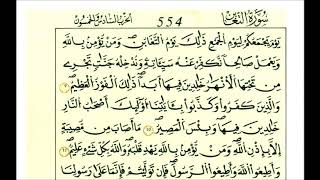 سُورَةُ التَّغَابُنِ 554 الحزب السادس والخمسون
يَوْمَ يَجْمَعُكُمْ لِيَوْمِ الْجَمْعِ ذَٰلِكَ يَوْمُ التَّغَابُنِ وَمَنْ يُؤْمِنْ بِاللَّهِ
وَيَعْمَلْ صَالِحًا نُكَفِّرْ عَنْهُ سَيِّئَاتِهِ وَنُدْخِلْهُ جَنَّاتٍ تَجْرِي
مِنْ تَحْتِهَا الْأَنْهَارُ خَالِدِينَ فِيهَا أَبَدًا ذَٰلِكَ الْفَوْزُ الْعَظِيمُ
وَالَّذِينَ كَفَرُوا وَكَذَّبُوا بِآيَاتِنَا أُولَٰئِكَ أَصْحَابُ النَّارِ
خَالِدِينَ فِيهَا وَبِئْسَ الْمَصِيرُ مَا أَصَابَ مِنْ مُصِيبَةٍ
إِلَّا بِإِذْنِ اللَّهِ وَمَنْ يُؤْمِنْ بِاللَّهِ يَهْدِ قَلْبَهُ وَاللَّهُ بِكُلِّ شَيْءٍ عَلِيمٌ
وَأَطِيعُوا اللَّهَ وَأَطِيعُوا الرَّسُولَ فَإِنْ تَوَلَّيْتُمْ فَإِنَّمَا عَلَىٰ رَسُولِنَا